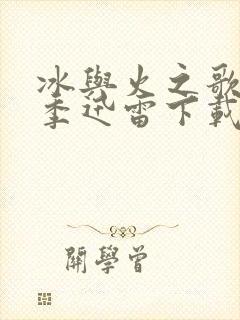 冰與火之歌
季迅雷下載
開學曾